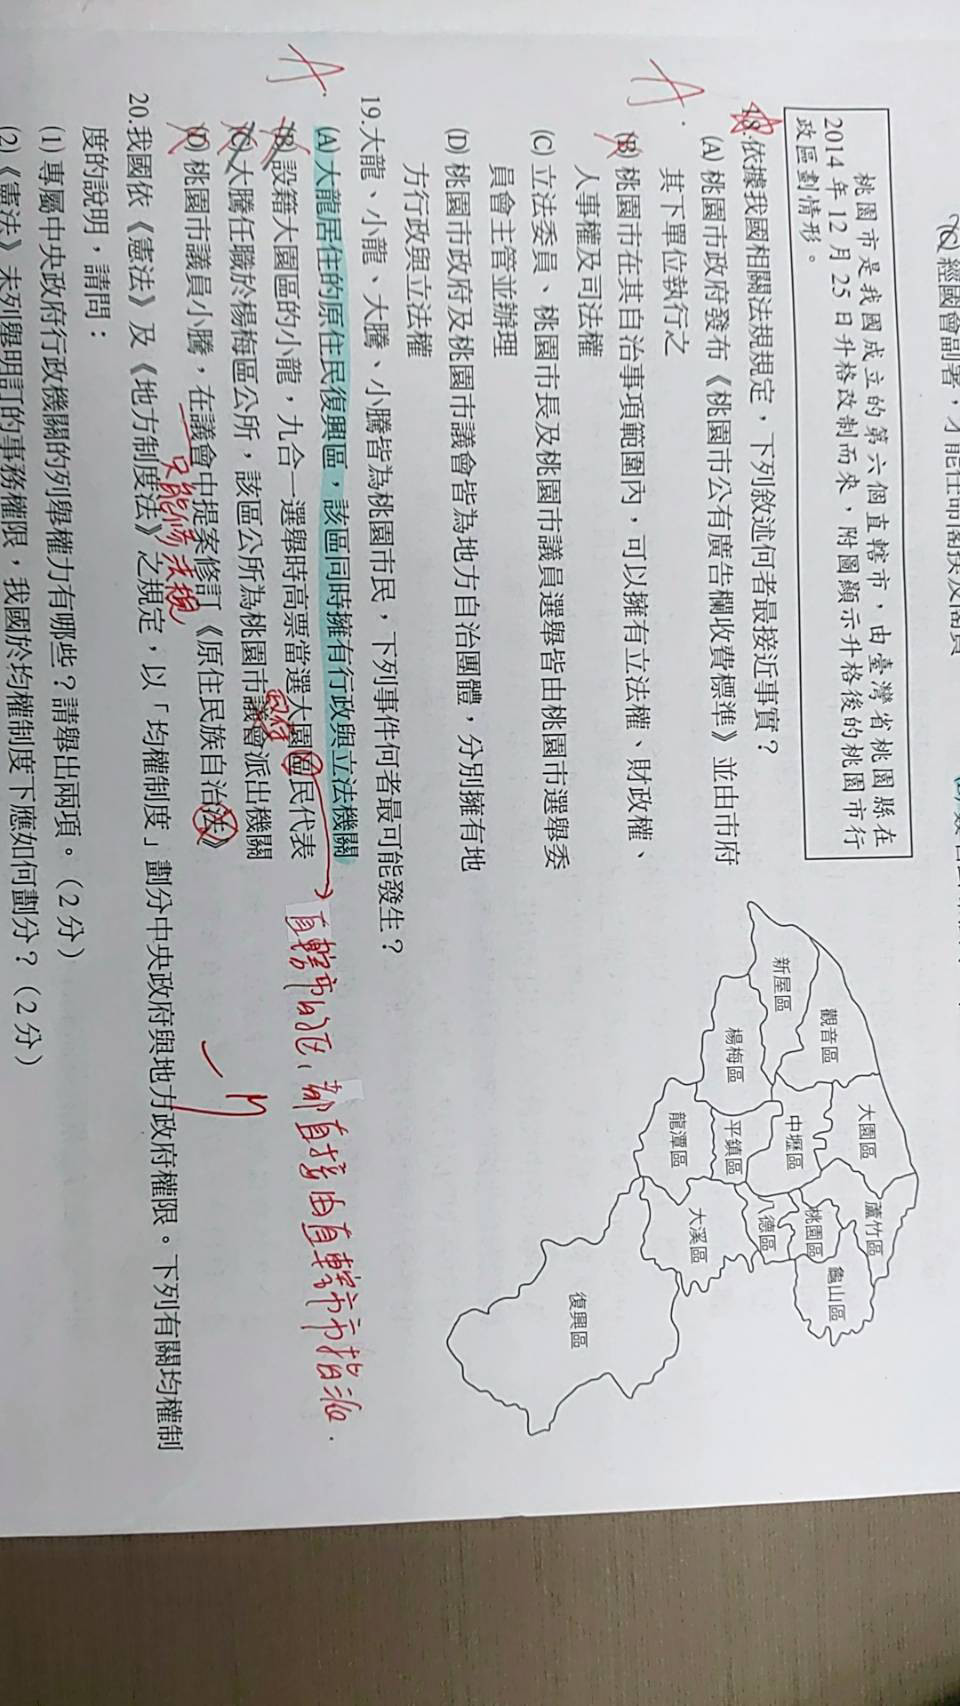 (C)經國會副署,才能任命閣揆及閣員
桃園市是我國成立的第六個直轄市,由臺灣省桃園縣在
2014年12月25日升格改制而來,附圖顯示升格後的桃園市行
政區劃情形。
新屋區
觀音區
大園區
蘆竹區
楊梅區
中壢區
桃園區
龜山區
平鎮區
八德區
龍潭區
大溪區
復興區
18.依據我國相關法規規定,下列敘述何者最接近事實?
(A)桃園市政府發布《桃園市公有廣告欄收費標準》並由市府
其下單位執行之
A.
(B)桃園市在其自治事項範圍內,可以擁有立法權、財政權、
人事權及司法權
(C)立法委員、桃園市長及桃園市議員選舉皆由桃園市選舉委
員會主管並辦理
(D)桃園市政府及桃園市議會皆為地方自治團體,分別擁有地
方行政與立法權
19.大龍、小龍、大騰、小騰皆為桃園市民,下列事件何者最可能發生?
A.
(A)大龍居住的原住民復興區,該區同時擁有行政與立法機關
(B)設籍大園區的小龍,九合一選舉時高票當選大園區民代表
直轄市的區,都直接由直轄市市指派.
(C)大騰任職於楊梅區公所,該區公所為桃園市議會派出機關
政府
(D)桃園市議員小騰,在議會中提案修訂《原住民族自治法》
只能修法規
20.我國依《憲法》及《地方制度法》之規定,以「均權制度」劃分中央政府與地方政府權限。下列有關均權制
度的說明,請問:
(1)專屬中央政府行政機關的列舉權力有哪些?請舉出兩項。(2分)
(2)《憲法》未列舉明訂的事務權限,我國於均權制度下應如何劃分?(2分)